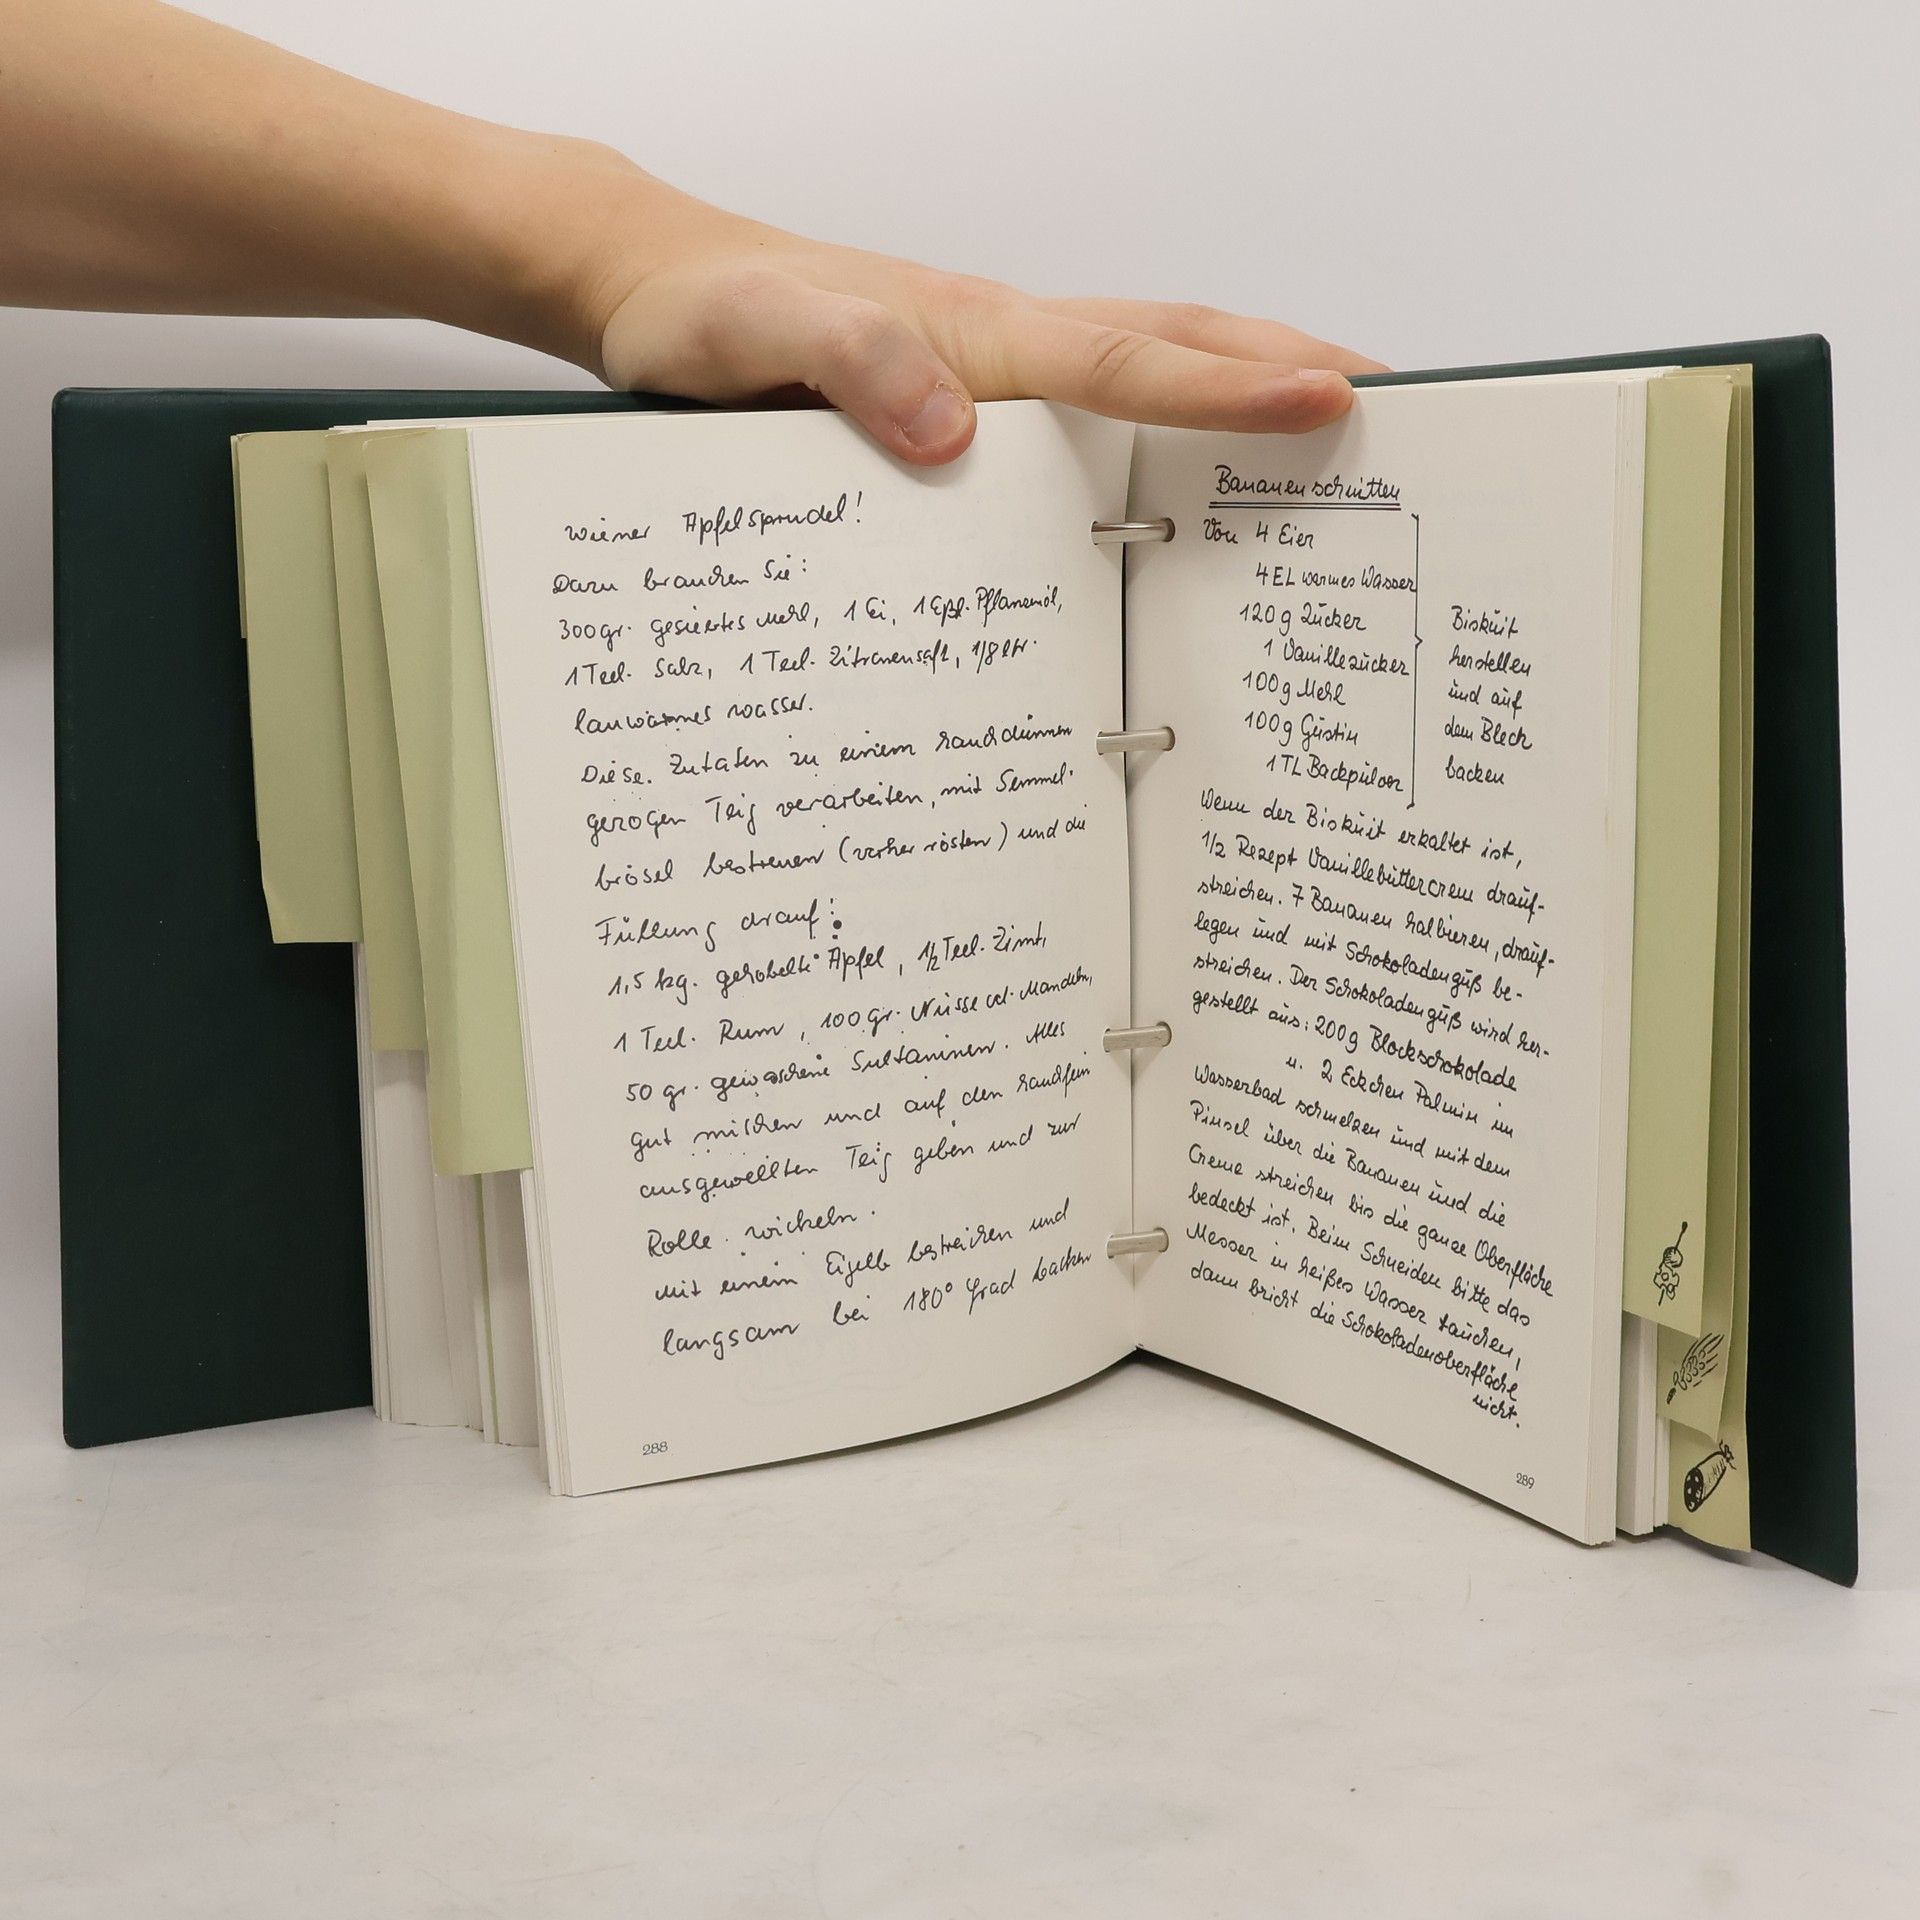 Wiener Apfelsprudel!
Dazu brauchen Sie:
300gr. gesiebtes Mehl, 1 Ei, 1 Eßl. Pflanzenöl,
1 Teel. Salz, 1 Teel. Zitronensaft, 1/8 ltr.
lauwarmes wasser.
Diese Zutaten zu einem handdünnen
gezogen Teig verarbeiten, mit Semmel-
brösel bestreuen (vorher rösten) und die
Füllung drauf:
1,5 kg. gehobelte Äpfel, 1/2 Teel. Zimt,
1 Teel. Rum, 100 gr. Nüsse od. Mandeln,
50 gr. gewaschene Sultaninen. Alles
gut mischen und auf den handfein
ausgewellten Teig geben und zur
Rolle wickeln.
mit einem Eigelb bestreichen und
langsam bei 180° Grad backen
288
Bananenschnitten
Von 4 Eier
4 EL warmes Wasser
120 g Zucker
1 Vanillezucker
100 g Mehl
100 g Gustin
1 TL Backpulver
Biskuit
herstellen
und auf
dem Blech
backen
Wenn der Biskuit erkaltet ist,
1/2 Rezept Vanillebuttercrem drauf-
streichen. 7 Bananen halbieren, drauf-
legen und mit Schokoladenguß be-
streichen. Der Schokoladenguß wird her-
gestellt aus: 200 g Blockschokolade
u. 2 Eckchen Palmin im
Wasserbad schmelzen und mit dem
Pinsel über die Bananen und die
Creme streichen bis die ganze Oberfläche
bedeckt ist. Beim Schneiden bitte das
Messer in heißes Wasser tauchen,
dann bricht die Schokoladenoberfläche
nicht.
289